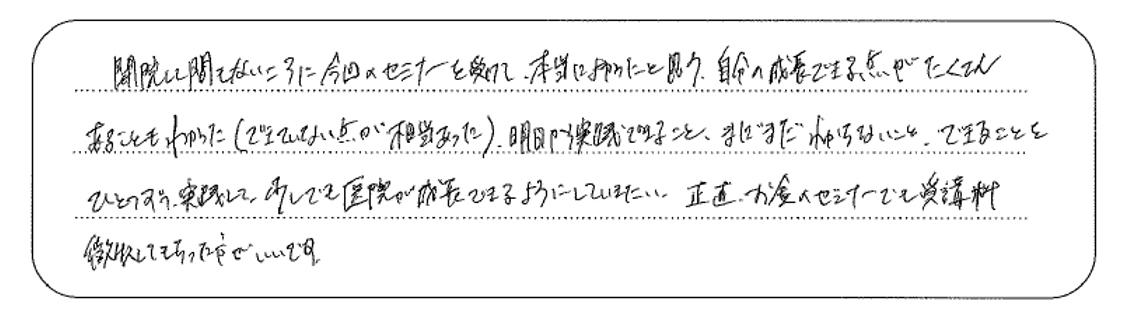 開院して間もないころに今回のセミナーを受けて、本当によかったと思う。自分の成長できる点がたくさん
あることもわかった(できていない点が相当あった)。明日から実践できること、まだまだわからないこと、できることを
ひとつずつ実践して、少しでも医院が成長できるようにしていきたい。正直、お金のセミナーでも受講料
徴収してもらった方がいいです。